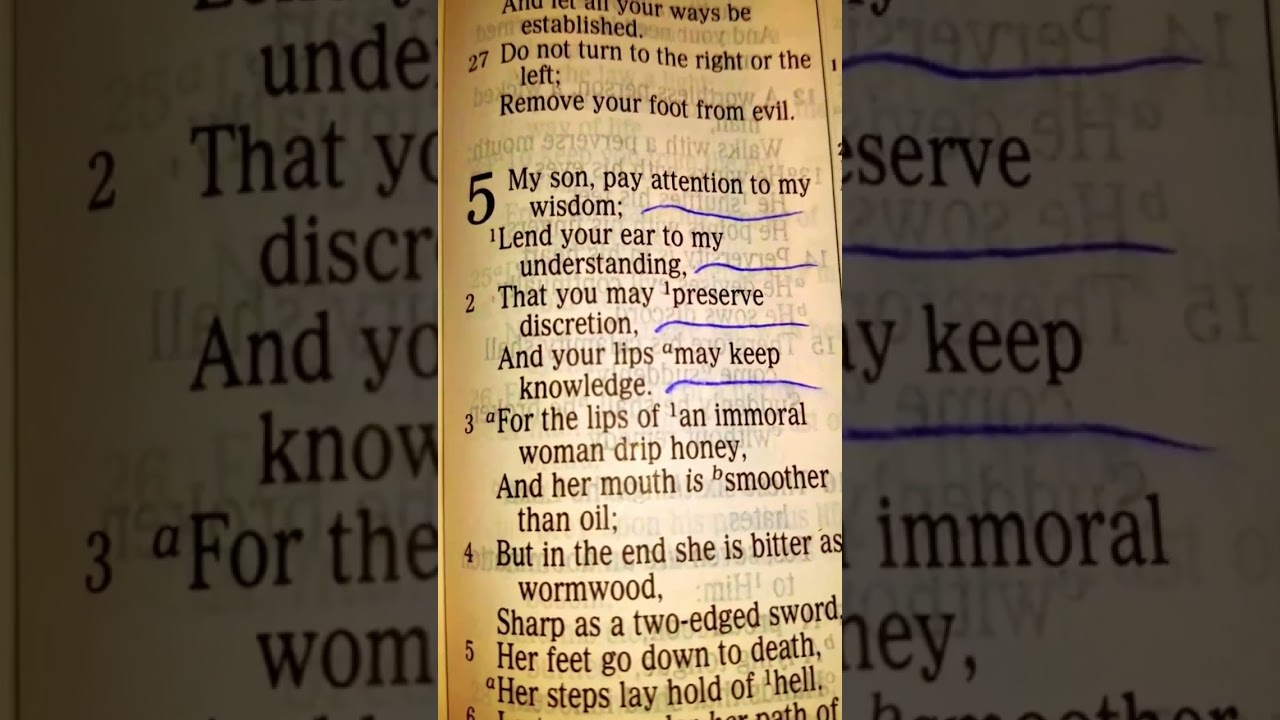 And let all your ways be
established.
27 Do not turn to the right or the
left;
Remove your foot from evil.
5 My son, pay attention to my
wisdom;
1Lend your ear to my
understanding,
2 That you may 1preserve
discretion,
And your lips amay keep
knowledge.
3 aFor the lips of 1an immoral
woman drip honey,
And her mouth is bsmoother
than oil;
4 But in the end she is bitter as
wormwood,
Sharp as a two-edged sword.
5 Her feet go down to death,
aHer steps lay hold of 1hell.
6 her path of